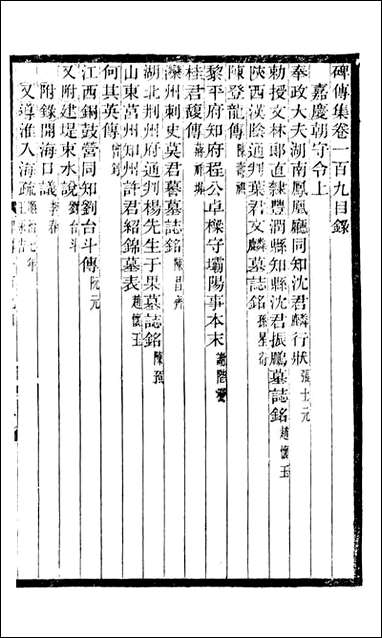 碑傳集卷一百九目錄
嘉慶朝守令上
奉政大夫湖南鳳凰廳同知沈君麟行狀 張士元
勅授文林郎直隸豐潤縣知縣沈君振鵬墓誌銘 趙懷玉
陝西漢陰通判葉君文麟墓誌銘 孫星衍
陳登龍傳 陳壽祺
黎平府知府程公卓樑守壩陽事本末 謝階
桂君馥傳 蔣祥墀
灤州刺史莫君 墓誌銘 陳昌齊
湖北荆州府通判楊先生于果墓誌銘 陳
山東莒州知州許君紹錦墓表 趙懷玉
何其英傳
江西銅鼓營同知劉台斗傳 阮元
又府建堤束水說 劉台斗
附錄開海口議 李春
又導淮入海疏